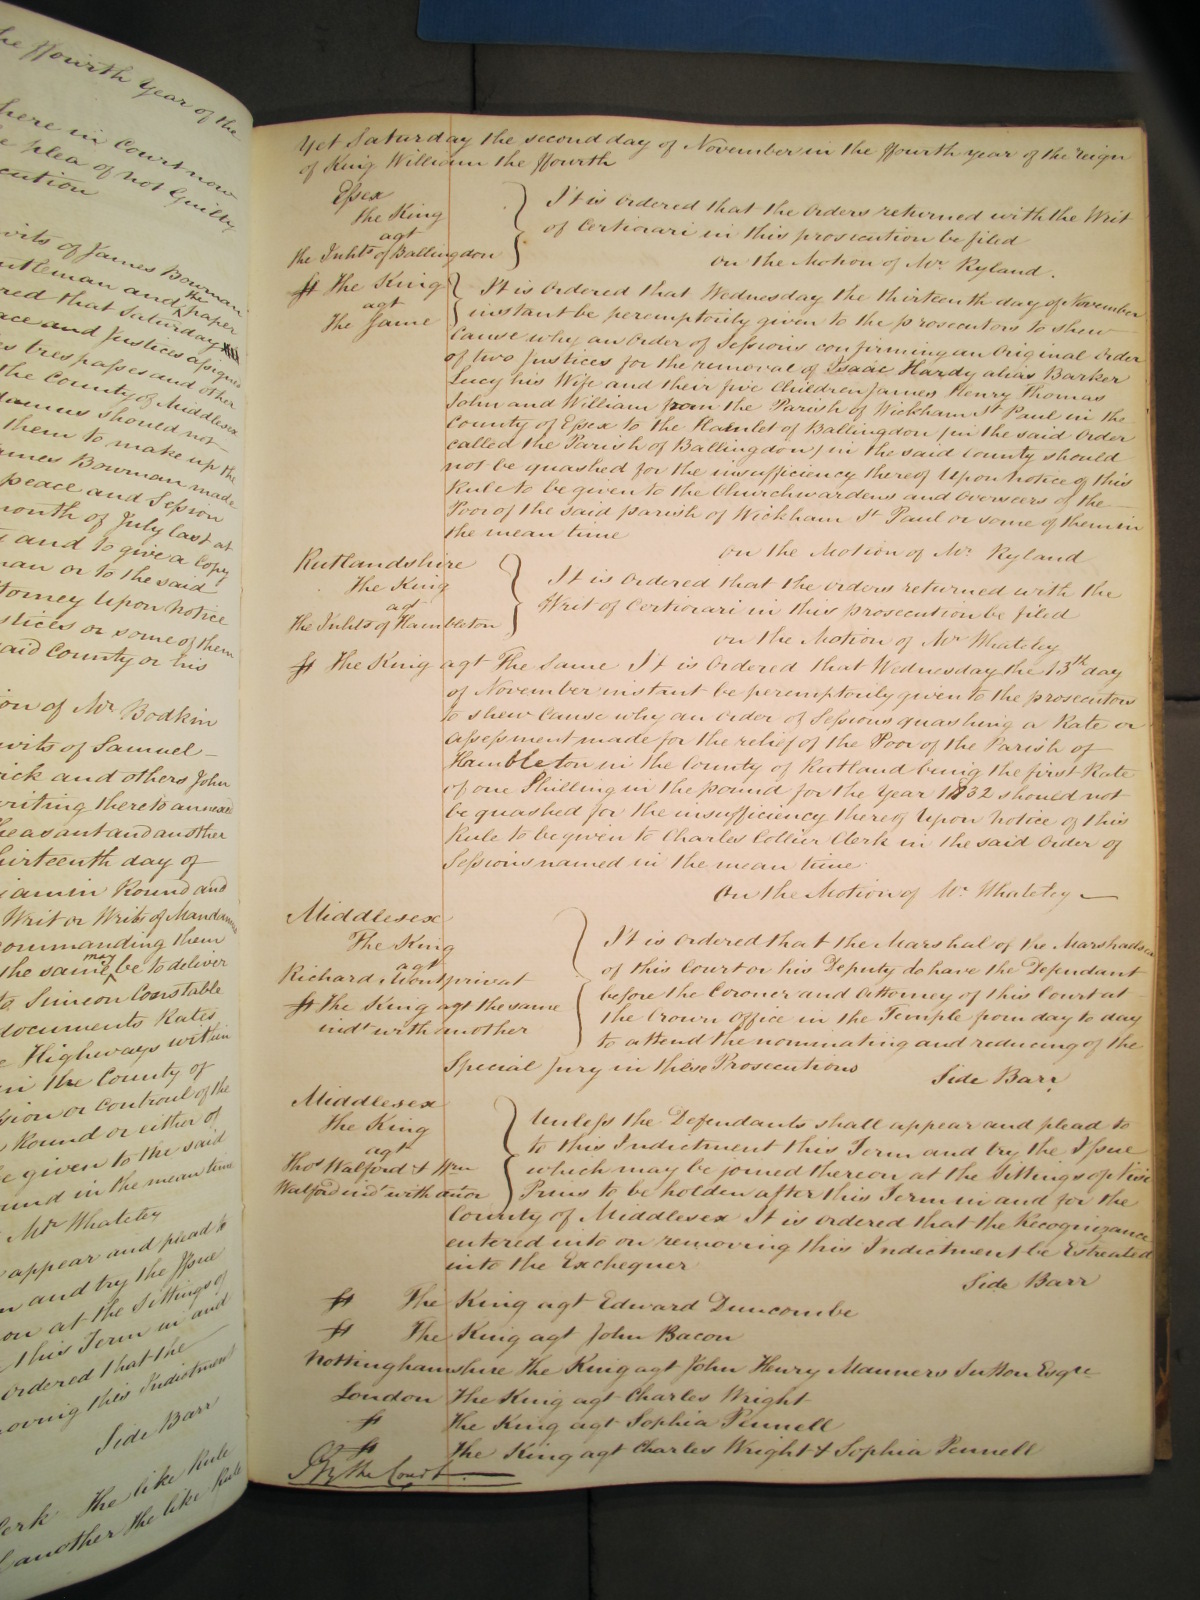 he ffourth Year of the
here in Court now
e plea of not Guilty
cution
writs of James Bowman
ntleman and the paper
red that Saturday
ace and Justices assigned
es trespasses and other
the County of Middlesex
should not
them to make up the
ames Bowman made
peace and Session
month of July last at
and to give a Copy
man or to the said
torney Upon Notice
stices or some of them
said County or his
ion of Mr Bodkin
writs of Samuel
ick and others John
writing thereto annexed
heasant and another
hirteenth day of
jamin Round and
Writ or Writs of Mandamus
commanding them
the same may be to deliver
to Simeon Constable
documents Rates
e Highways within
in the County of
sion or Controul of the
Round or either of
e given to the said
und in the mean time
Mr Whateley
appear and plead to
n and try the Issue
on at the Sittings of
this Term in and
ordered that the
oving this Indictment
Side Barr
lerk The like Rule
another the like Rule
Yet Saturday the second day of November in the ffourth year of the reign
of King William the ffourth
Essex
The King
agt
the Inhts of Ballingdon
It is ordered that the Orders returned with the Writ
of Certiorari in this prosecution be filed
on the Motion of Mr Ryland.
st The King
agt
The Same
It is ordered that Wednesday the thirteenth day of November
instant be peremptorily given to the prosecutors to shew
Cause why an Order of Sessions confirming an Original Order
of two Justices for the removal of Isaac Hardy alias Barker
Lucy his Wife and their five Children James Henry Thomas
John and William from the Parish of Wickham St Paul in the
County of Essex to the Hamlet of Ballingdon (in the said Order
called the Parish of Ballingdon) in the said County should
not be quashed for the insufficiency thereof Upon Notice of this
Rule to be given to the Churchwardens and Overseers of the
Poor of the said parish of Wickham St Paul or some of them in
the mean time
on the Motion of Mr Ryland
Rutlandshire
The King
agt
the Inhts of Hambleton
It is ordered that the orders returned with the
Writ of Certiorari in this prosecution be filed
on the Motion of Mr Whateley
st The King agt The Same It is Ordered that Wednesday the 13th day
of November instant be peremptorily given to the prosecutors
to shew Cause why an Order of Sessions quashing a Rate or
assessment made for the relief of the Poor of the Parish of
Hambleton in the County of Rutland being the first Rate
of one Shilling in the pound for the Year 1832 should not
be quashed for the insufficiency thereof Upon Notice of this
Rule to be given to Charles Collier Clerk in the said Order of
Sessions named in the mean time
On the Motion of Mr Whateley
Middlesex
The King
agt
Richard Montprivat
st The King agt the same
indt with another
It is ordered that the Marshal of the Marshalsea
of this Court or his Deputy do have the Defendant
before the Coroner and Attorney of this Court at
the Crown Office in the Temple from day to day
to attend the nominating and reducing of the
Special Jury in these Prosecutions
Side Barr
Middlesex
The King
agt
Thos Walford & Wm
Walford indt with anor
Unless the Defendants shall appear and plead to
to this Indictment this Term and try the Issue
which may be joined thereon at the Sittings of Nisi
Prius to be holden after this Term in and for the
County of Middlesex It is ordered that the Recognizance
entered into on removing this Indictment be Estreated
into the Exchequer
Side Barr
st The King agt Edward Duncombe
st The King agt John Bacon
Nottinghamshire The King agt John Henry Manners Sutton Esqre
London The King agt Charles Wright
st The King agt Sophia Pennell
st The King agt Charles Wright & Sophia Pennell
By the Court